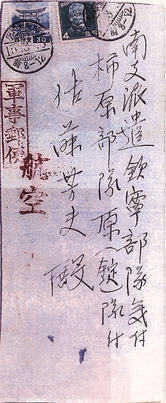 南支派遣欽寧部隊気付
柿原部隊原隊付
佐藤芳夫 殿
軍事郵便
航空